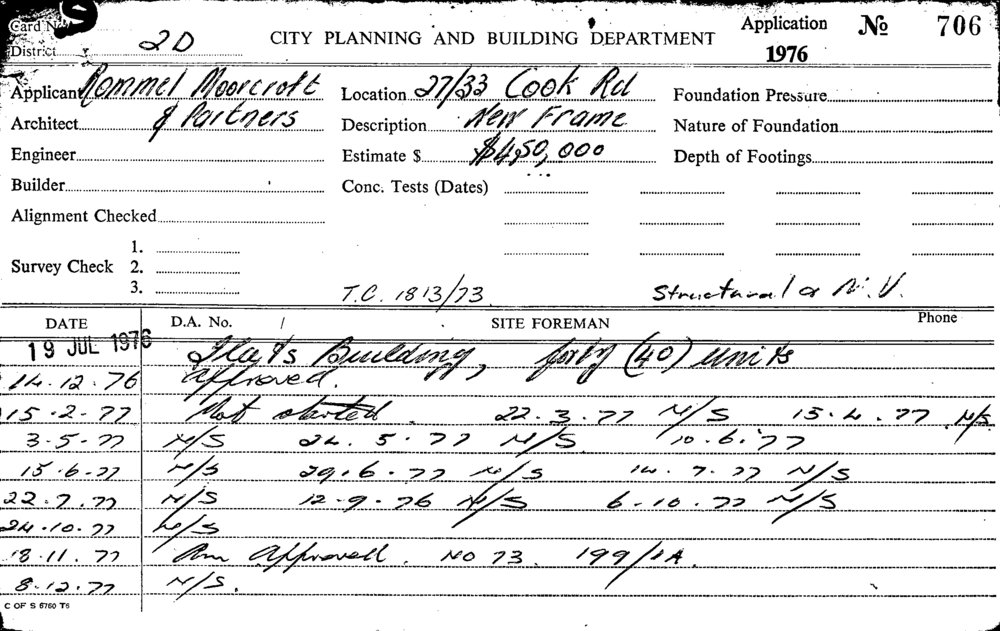 Card No. S
Application № 706
District 2D CITY PLANNING AND BUILDING DEPARTMENT 1976
Applicant Rommel Moorcroft Location 27/33 Cook Rd Foundation Pressure
Architect & Partners Description New Frame Nature of Foundation
Engineer Estimate $ $450,000 Depth of Footings
Builder Conc. Tests (Dates)
Alignment Checked
1.
Survey Check 2.
3. T.C. 1813/73 Structural &
DATE D.A. No. / SITE FOREMAN Phone
19 JUL 1976 Flats Building, forty (40) units
14.12.76 Approved.
15.2.77 Not started. 22.3.77 N/S 15.4.77 N/S
3.5.77 N/S 24.5.77 N/S 10.6.77
15.6.77 N/S 29.6.77 N/S 14.7.77 N/S
22.7.77 N/S 12.9.76 N/S 6.10.77 N/S
24.10.77 N/S
18.11.77 Am Approved. NO 73. 199/1A.
8.12.77 N/S.
C OF S 6760 T6